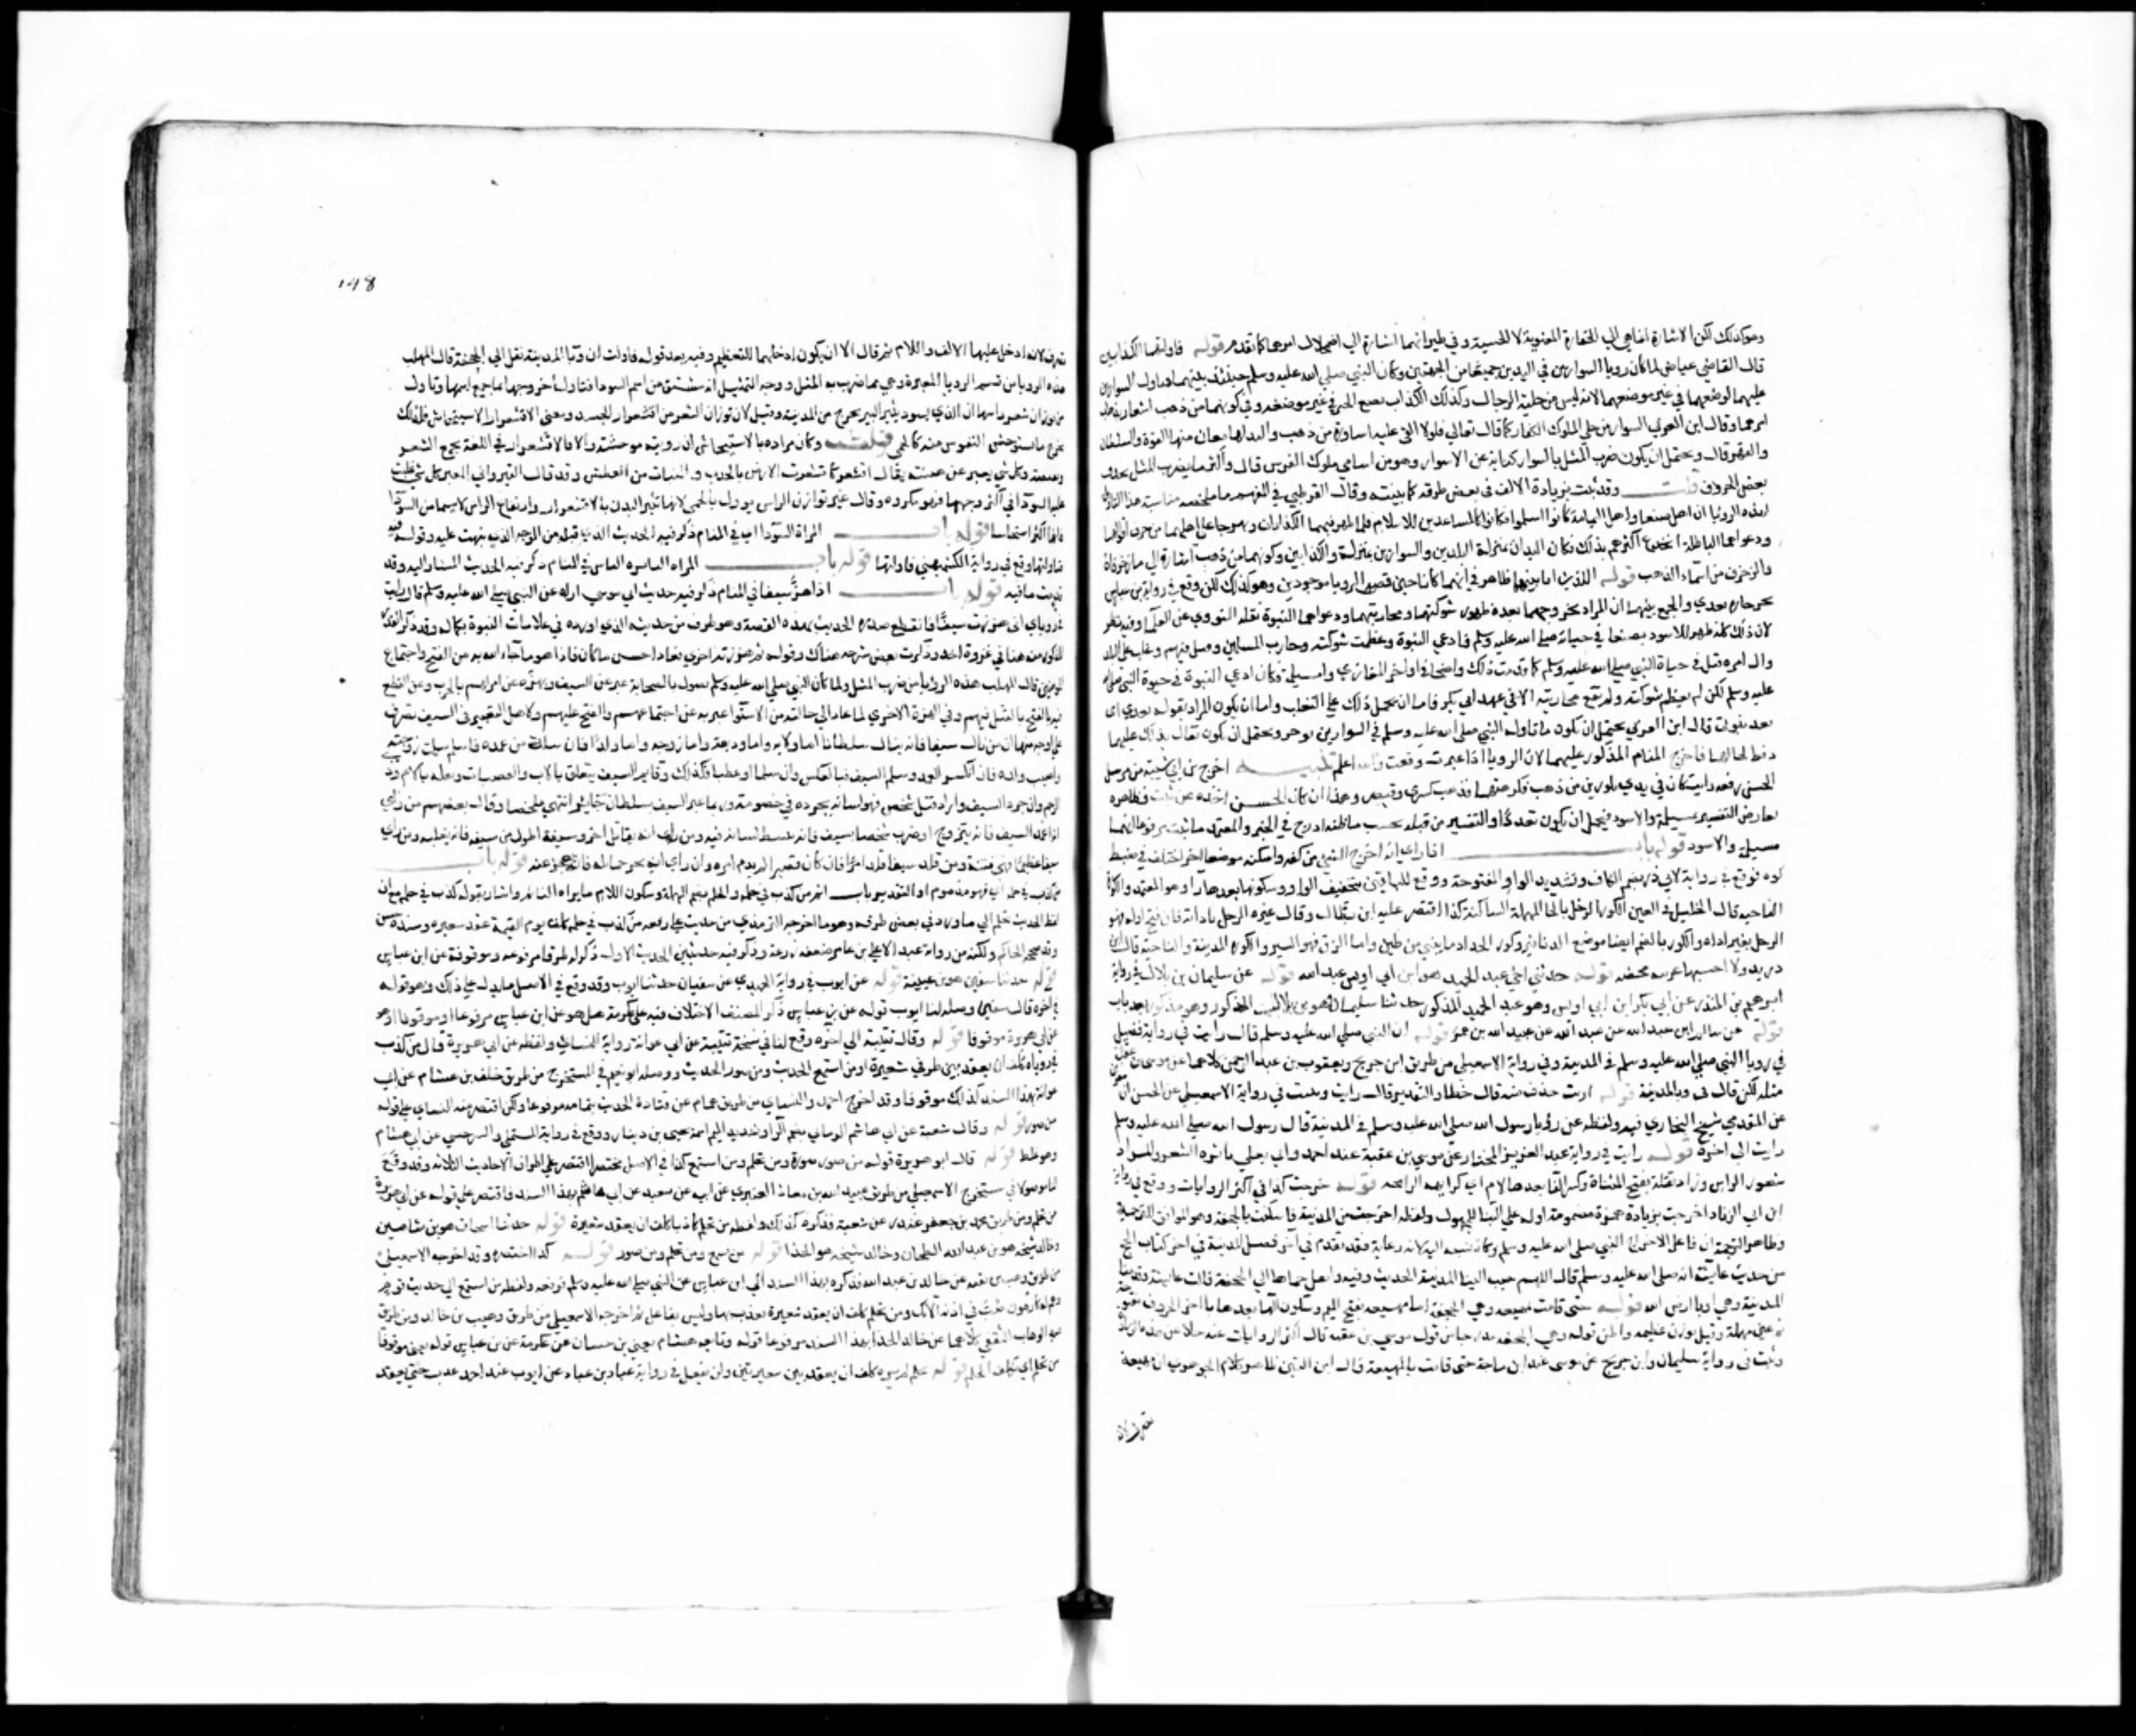 وهو كذلك لكن الاشارة انما هي الي الحقارة المعنوية لا الحسية وفي طيرانهما اشارة الي اضمحلال امرهما كما تقدم قوله فاولتهما الكذابين
قال القاضي عياض لما كان رويا السوارين في اليدين جميعا من الجهتين وكان النبي صلي الله عليه وسلم حينئذ بينهما فتاول السوارين
عليهما لوضعهما في غير موضعهما لانه ليس من حلية الرجال وكذلك الكذاب يضع الخبر في غير موضعه وفي كونهما من ذهب اشعار بذهاب
امرهما وقال ابن العربي السوار من حلي الملوك الكفار كما قال تعالي فلولا القي عليه اساورة من ذهب واليد لها معان منها القوة والسلطان
والقهر قال ويحتمل ان يكون ضرب المثل بالسوار كناية عن الاسوار وهو من اسامي ملوك الفرس قال وكثيرا ما يضرب المثل بحذف
بعض الحروف قلت وقد ثبت بزيادة الالف في بعض طرقه كما بينته وقال القرطبي في المفهم ما ملخصه مناسبة هذا التاويل
لهذه الرويا ان اهل صنعا واهل اليمامة كانوا اسلموا فكانوا كالمساعدين للاسلام فلما ظهر فيهما الكذابان وبهرجا علي اهلهما بزخرف اقوالهما
ودعواهما الباطلة انخدع اكثرهم بذلك فكان اليدان بمنزلة البلدين والسوارين بمنزلة الكذابين وكونهما من ذهب اشارة الي ما زخرفاه
والزخرف من اسماء الذهب قوله اللذين انا بينهما ظاهر في انهما كانا حين قص الرويا موجودين وهو كذلك لكن وقع في رواية بن عباس
يخرجان بعدي والجمع بينهما ان المراد بخروجهما بعده ظهور شوكتهما ومحاربتهما ودعواهما النبوة نقله النووي عن العلما وفيه نظر
لان ذلك كله ظهر للاسود بصنعا في حياته صلي الله عليه وسلم فادعي النبوة وعظمت شوكته وحارب المسلمين وفتك فيهم وغلب علي البلد
وال امره قتل في حياة النبي صلي الله عليه وسلم كما قدمت ذلك واضحا في اواخر المغازي واما مسيلمة فكان ادعي النبوة في حيوة النبي صلي الله
عليه وسلم لكن لم يعظم شوكته ولم تقع محاربته الا في عهد ابي بكر فاما ان يحمل ذلك علي التغليب واما ان يكون المراد بقوله بعدي اي
بعد نبوتي قال ابن العربي يحتمل ان يكون ما تاوله النبي صلي الله عليه وسلم في السوارين بوحي ويحتمل ان يكون تفال بذلك عليهما
دفعا لحالهما فاخرج المنام المذكور عليهما لان الرويا اذا عبرت وقعت والله اعلم تنبيه اخرج بن ابي شيبة من مرسل
الحسن رفعه رايت كان في يدي سوارين من ذهب فكرهتهما فذهب كسري وقيصر وهذا ان كان الحسن اخذه عن ثبت فظاهره
يعارض التفسير بمسيلمة والاسود فيحتمل ان يكون تعددا والتفسير من قبله بحسب ما ظنه ادرج في الخبر والمعتمد ما ثبت مرفوعا انهما
مسيلمة والاسود قوله باب اذا راي انه اخرج الشي من كوة واسكنه موضعا اخر اختلف في ضبط
كوه فوقع في رواية لابي ذر بضم الكاف وتشديد الواو المفتوحة ووقع للباقين بتخفيف الواو وسكونها بعدها را وهو المعتمد والكورة
الناحيه قال الخليل في العين الكور الرحل بالحا المهملة الساكنة كذا اقتصر عليه ابن بطال وقال غيره الرحل باداته فان فتح اوله فهو
الرحل بغير اداه والكور بالضم ايضا موضع الدنانير وكور الحداد ما يبني من طين واما الزق فهو الكير والكوره المدينة والناحية قال ابن
دريد ولا احسبها عربيه محضه قوله حدثني اخي عبد الحميد هو ابن ابي اويس عبد الله قوله عن سليمان بن بلال في رواية
ابرهيم بن المنذر عن ابي بكر ابن ابي اويس وهو عبد الحميد المذكور حدثنا سليمان وهو بن بلال المذكور وهو مذكور بعد باب
قوله عن سالم ابن عبد الله عن عبد الله بن عمر قوله ان النبي صلي الله عليه وسلم قال رايت في رواية فضيل
في رويا النبي صلي الله عليه وسلم في المدينة وفي رواية الاسمعيلي من طريق ابن جريج ويعقوب بن عبد الرحمن كلاهما عن موسي بن عقبة
مثله لكن قال في وبا المدينة قوله رايت حذف منه قال خطا والتقدير قال رايت وثبت في رواية الاسمعيلي عن الحسن بن سفين
عن المقدمي شيخ البخاري فيه ولفظه عن رؤيا رسول الله صلي الله عليه وسلم في المدينة قال رسول الله صلي الله عليه وسلم
رايت الي اخره قوله رايت في رواية عبد العزيز المختار عن موسي بن عقبة عند احمد وابي يعلي
ثاير الراس وزاد تفلة بفتح المثناة وكسر الفا بعدها لام اي كريهه الرايحه قوله خرجت كذا في اكثر الروايات ووقع في رواية
ابن ابي الزناد اخرجت بزيادة همزة مضمومة اوله علي البنا للمجهول ولفظه اخرجت من المدينة فاسكنت بالجحفة وهو الموافق للترجمة
وظاهر الترجمة ان فاعل الاخراج النبي صلي الله عليه وسلم وكانه نسبه اليه لانه دعا به فقد تقدم في اخر فضل المدينة في اخر كتاب الحج
من حديث عايشة انه صلي الله عليه وسلم قال اللهم حبب الينا المدينة الحديث وفيه وانقل حماها الي الجحفة قالت عايشة وقدمنا
المدينة وهي اوبا ارض الله قوله حتي قامت بمهيعة وهي الجحفة اما مهيعة بفتح الميم وسكون الها بعدها يا اخر الحروف مفتوحة
ثم عين مهملة وقيل بوزن عظيمه واظن قوله وهي الجحفه مدرجا من قول موسي بن عقبة فان اكثر الروايات عنه خلا عن هذه الزيادة
وثبت في رواية سليمان وابن جريج عن موسي عند ابن ماجة حتي قامت بالمهيعة قال ابن التين ظاهر كلام الجوهري ان مهيعة
تصرف لانه
١٩٨
تصرف لانه ادخل عليها الالف واللام ثم قال الا ان يكون ادخلهما للتعظيم وفيه بعد قوله فاولت ان وبا المدينة نقل الي الجحفة قال المهلب
هذه الرويا من قسم الرويا المعبرة وهي مما ضرب به المثل ووجه التمثيل انه شق من اسم السودا فتاول خروجها ما جمع اسمها وتاول
من ثوران شعر راسها ان الذي يسود ويثير الشر يخرج من المدينة وقيل لان ثوران الشعر من اقشعرار الجسد ومعني الاقشعرار الاستيحاش فلذلك
يخرج ما تستوحش النفوس منه كالحمي قلت وكان مراده بالاستيحاش ان رويته موحشة والا فالاقشعرار في اللغة تجمع الشعر
وتقبضه وكل شي تغير عن هيئته يقال اقشعر كما قشعرت الارض بالجدب والنبات من العطش وقد قال القيرواني المعبر كل شي غلبت
عليه السودا في اكثر وجهها فهو مكروه وقال غيره ثوران الراس يوول بالحمي لانها تثير البدن بالاقشعرار وارتفاع الراس لا سيما من السودا
فانها اكثر استيحاشا قوله باب المراة السودا اي في المنام ذكر فيه الحديث الذي قبله من الوجه الذي نبهت عليه وقوله فيه
فتاولتها وقع في رواية الكشميهني فاولتها قوله باب المراه الثايره الراس في المنام ذكر فيه الحديث المشار اليه وقد
تقدمت ما فيه قوله باب اذا هز سيفا في المنام ذكر فيه حديث ابي موسي اراه عن النبي صلي الله عليه وسلم قال رايت
في روياي اني هززت سيفا فانقطع صدره الحديث بهذه القصة وهو طرف من حديثه الذي اورده في علامات النبوة بكماله وقد ذكر القدر
المذكور منه هنا في غزوة احد وذكرت بعض شرحه هناك وقوله ثم هززته اخري فعاد احسن ما كان فاذا هو ما جاء الله به من الفتح واجتماع
المومنين قال المهلب هذه الرؤيا من ضرب المثل ولما كان النبي صلي الله عليه وسلم يصول بالصحابة عبر عن السيف بهم وبهزه عن امره لهم بالحرب وعن القطع
فيه بالقتل فيهم وفي الهزة الاخري لما عاد الي حالته من الاستوا عبر به عن اجتماعهم والفتح عليهم ولاهل التعبير في السيف تصرف
علي اوجه منها ان من نال سيفا فانه ينال سلطانا اما ولايه واما وديعة واما زوجه واما ولدا فان سله من غمده فانثلم سلمت زوجته
واصيب ولده فان انكسر الغمد وسلم السيف فبالعكس وان سلما او عطبا فكذلك وقايم السيف يتعلق بالاب والعصبات ونصله بالام وذوي
الرحم وان جرد السيف واراد قتل شخص فهو لسانه يجرده في خصومة وربما عبر السيف بسلطان جاير انتهي ملخصا وقال بعضهم من راي
انه اغمد السيف فانه يتزوج او ضرب شخصا بسيف فانه يبسط لسانه فيه ومن راي انه يقاتل اخر وسيفه اطول من سيفه فانه يغلبه ومن راي
سيفا عظيما فهي فتنة ومن قلد سيفا قلد امرا فان كان قصيرا لم يدم امره وان راي انه يجر حمايله فانه يعجز عنه قوله باب
من كذب في حلمه اي فهو مذموم او التقدير باب اثم من كذب في حلمه والحلم بضم المهملة وسكون اللام ما يراه النايم واشار بقوله كذب في حلمه مع ان
لفظ الحديث تحلم الي ما ورد في بعض طرقه وهو ما اخرجه الترمذي من حديث علي رفعه من كذب في حلمه كلف يوم القيمة عقد شعيره وسنده حسن
وقد صححه الحاكم ولكنه من رواية عبد الاعلي بن عامر ضعفه ابو زرعة وذكر فيه حديثين الحديث الاول ذكر له طرقا مرفوعه وموقوفة عن ابن عباس
قوله حدثنا سفين هو بن عيينة قوله عن ايوب في رواية الحميدي عن سفيان حدثنا ايوب وقد وقع في الاصل ما يدل علي ذلك وهو قوله
في اخره قال سفين وصله لنا ايوب قوله عن بن عباس ذكر المصنف الاختلاف فيه علي عكرمة هل هو عن ابن عباس مرفوعا او موقوفا او هو
عن ابي هريرة موقوفا قوله وقال قتيبة الي اخره وقع لنا في نسخة قتيبة عن ابي عوانة رواية النسائي ولفظه عن ابي هريرة قال من كذب
في روياه كلف ان يعقد بين طرفي شعيرة ومن استمع الحديث ومن صور الحديث ووصله ابو نعيم في المستخرج من طريق خلف بن هشام عن ابي
عوانة بهذا السند كذلك موقوفا وقد اخرج احمد والنسائي من طريق همام عن قتادة الحديث بتمامه مرفوعا ولكن اقتصر منه النسائي علي قوله
من صور قوله وقال شعبة عن ابي هاشم الرماني بضم الرا وتشديد الميم اسمه يحيي بن دينار ووقع في رواية المستملي والسرخسي عن ابي هشام
وهو غلط قوله قال ابو هريرة قوله من صور صورة ومن تحلم ومن استمع كذا في الاصل مختصرا اقتصر علي اطراف الاحاديث الثلاثه وقد وقع
لنا موصولا في مستخرج الاسمعيلي من طريق عبيد الله بن معاذ العنبري عن ابيه عن شعبة عن ابي هاشم بهذا السند فاقتصر علي قوله عن ابي هريرة
من تحلم ومن طريق محمد بن جعفر غندر عن شعبة فذكره كذلك ولفظه من تحلم كاذبا كلف ان يعقد شعيرة قوله حدثنا اسحاق هو بن شاهين
وخالد شيخه هو بن عبد الله الطحان وخالد شيخه هو الحذا قوله من استمع ومن تحلم ومن صور قوله كذا اختصره وقد اخرجه الاسمعيلي
من طريق وهب بن بقيه عن خالد بن عبد الله فذكره بهذا السند الي ابن عباس عن النبي صلي الله عليه وسلم فرفعه ولفظه من استمع الي حديث قوم
وهم له كارهون صب في اذنه الآنك ومن تحلم كلف ان يعقد شعيرة يعذب بها وليس بفاعل ثم اخرجه الاسمعيلي من طريق وهيب بن خالد ومن طريق
عبد الوهاب الثقفي كلاهما عن خالد الحذا بهذا السند مرفوعا قوله وتابعه هشام يعني بن حسان عن عكرمة عن بن عباس قوله يعني موقوفا
من تحلم اي تكلف الحلم قوله بحلم لم يره كلف ان يعقد بين شعيرتين ولن يفعل في رواية عباد بن عباد عن ايوب عند احمد عذب حتي يعقد